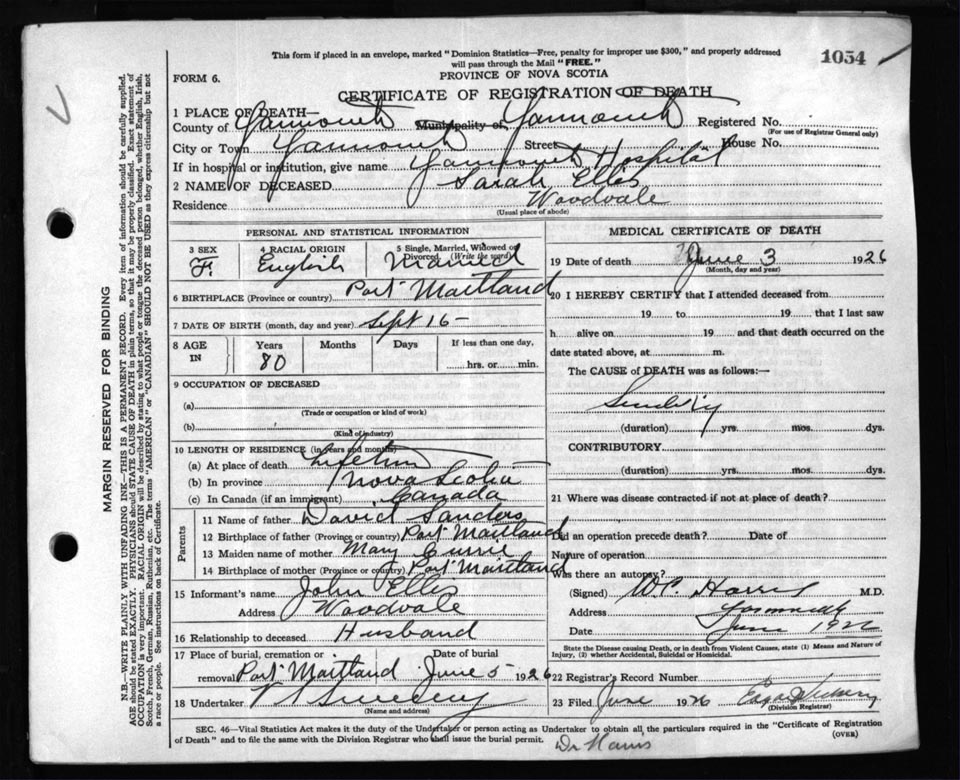 This form if placed in an envelope, marked "Dominion Statistics—Free, penalty for improper use $300," and properly addressed
will pass through the Mail "FREE."
1054
PROVINCE OF NOVA SCOTIA
FORM 6.
CERTIFICATE OF REGISTRATION OF DEATH
1 PLACE OF DEATH—
County of Yarmouth Municipality of Yarmouth Registered No.
(For use of Registrar General only)
City or Town Yarmouth Street House No.
If in hospital or institution, give name Yarmouth Hospital
2 NAME OF DECEASED Sarah Ellis
Residence Woodvale
(Usual place of abode)
PERSONAL AND STATISTICAL INFORMATION
3 SEX F.
4 RACIAL ORIGIN English
5 Single, Married, Widowed or Divorced. (Write the word) Married
6 BIRTHPLACE (Province or country) Port Maitland
7 DATE OF BIRTH (month, day and year) Sept 16 -
8 AGE IN Years Months Days If less than one day,
80 hrs. or min.
9 OCCUPATION OF DECEASED
(a)
(Trade or occupation or kind of work)
(b)
(Kind of industry)
10 LENGTH OF RESIDENCE (in years and months)
(a) At place of death
(b) In province Nova Scotia
(c) In Canada (if an immigrant) Canada
Parents
11 Name of father David Sanders
12 Birthplace of father (Province or country) Port Maitland
13 Maiden name of mother Mary
14 Birthplace of mother (Province or country) Port Maitland
15 Informant's name John Ellis
Address Woodvale
16 Relationship to deceased Husband
17 Place of burial, cremation or Date of burial
removal Port Maitland June 5 1926
18 Undertaker V Sweeny
(Name and address)
MEDICAL CERTIFICATE OF DEATH
19 Date of death June 3 1926
(Month, day and year)
20 I HEREBY CERTIFY that I attended deceased from
19 to 19 that I last saw
h alive on 19 and that death occurred on
date stated above, at m.
The CAUSE of DEATH was as follows:—
(duration) yrs. mos. dys.
CONTRIBUTORY
(duration) yrs. mos. dys.
21 Where was disease contracted if not at place of death?
Did an operation precede death? Date of
Nature of operation
Was there an autopsy?
(Signed) W.C. Harris M.D.
Address Yarmouth
Date June 1926
State the Disease causing Death, or in death from Violent Causes, state (1) Means and Nature of
Injury, (2) whether Accidental, Suicidal or Homicidal.
22 Registrar's Record Number
23 Filed June 1926
(Division Registrar)
SEC. 46—Vital Statistics Act makes it the duty of the Undertaker or person acting as Undertaker to obtain all the particulars required in the "Certificate of Registration
of Death" and to file the same with the Division Registrar who shall issue the burial permit.
(OVER)
Dr Harris
MARGIN RESERVED FOR BINDING
N.B.—WRITE PLAINLY WITH UNFADING INK—THIS IS A PERMANENT RECORD. Every item of information should be carefully supplied.
AGE should be stated EXACTLY. PHYSICIANS should STATE CAUSE OF DEATH in plain terms, so that it may be properly classified. Exact statement of
OCCUPATION is very important. RACIAL ORIGIN will be described by stating to what people or tongue the deceased person belonged, whether English, Irish,
Scotch, French, German, Russian, Ruthenian, etc. The terms "AMERICAN" or "CANADIAN" SHOULD NOT BE USED as they express citizenship but not
a race or people. See instructions on back of Certificate.